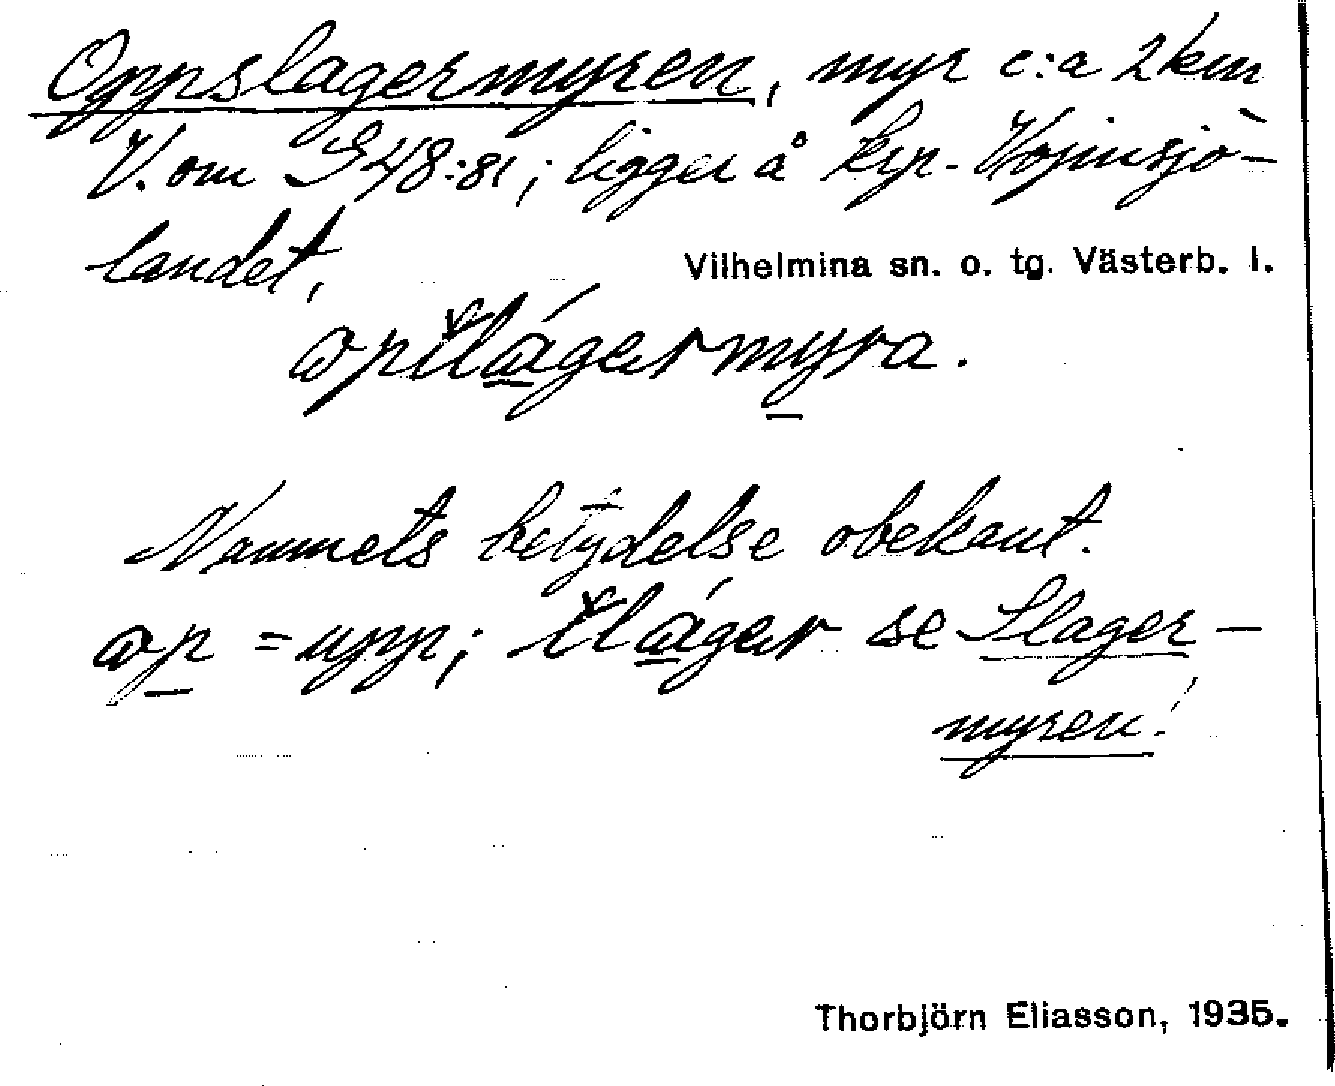 Oppslagermyren, myr c:a 2 km
V. om S48:81; ligger å krp. Vojmsjö-
landet,
Vilhelmina sn. o. tg. Västerb. l.
Namnets betydelse obekant.
= upp; se Slager-
myren!
Thorbjörn Eliasson, 1935.